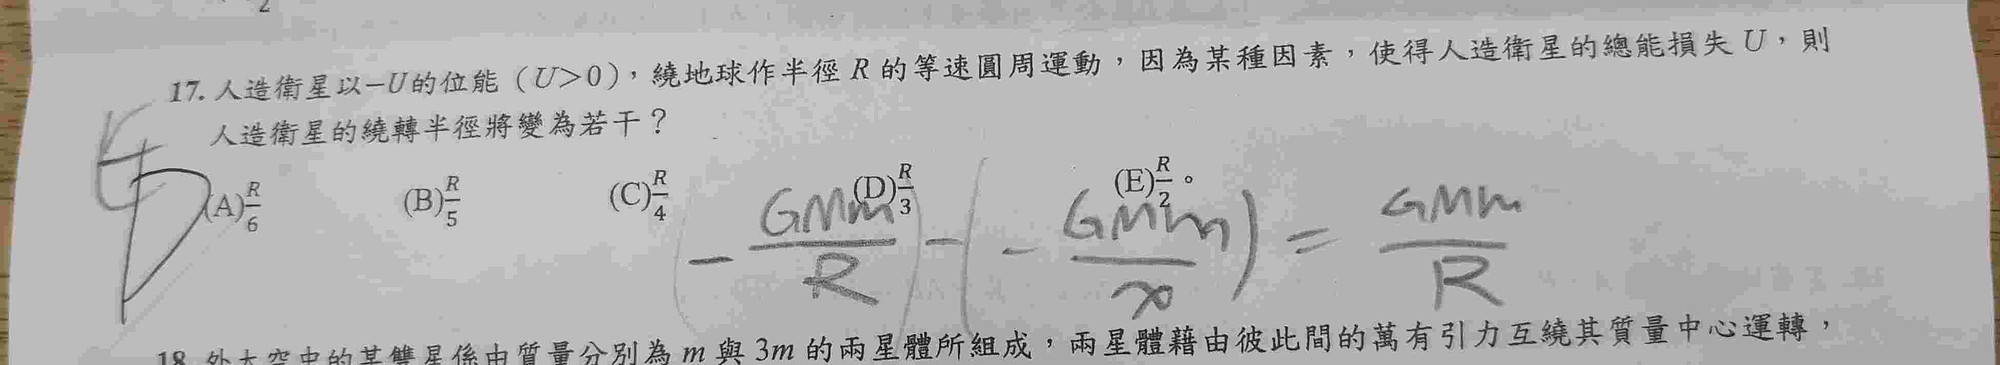 2
17. 人造衛星以−U的位能（U>0），繞地球作半徑 R 的等速圓周運動，因為某種因素，使得人造衛星的總能損失 U，則
人造衛星的繞轉半徑將變為若干？
(A) R/6 (B) R/5 (C) R/4 (D) R/3 (E) R/2 。
− GMm/R − (− GMm/x) = GMm/R
18. 外太空中的某雙星係由質量分別為 m 與 3m 的兩星體所組成，兩星體藉由彼此間的萬有引力互繞其質量中心運轉，